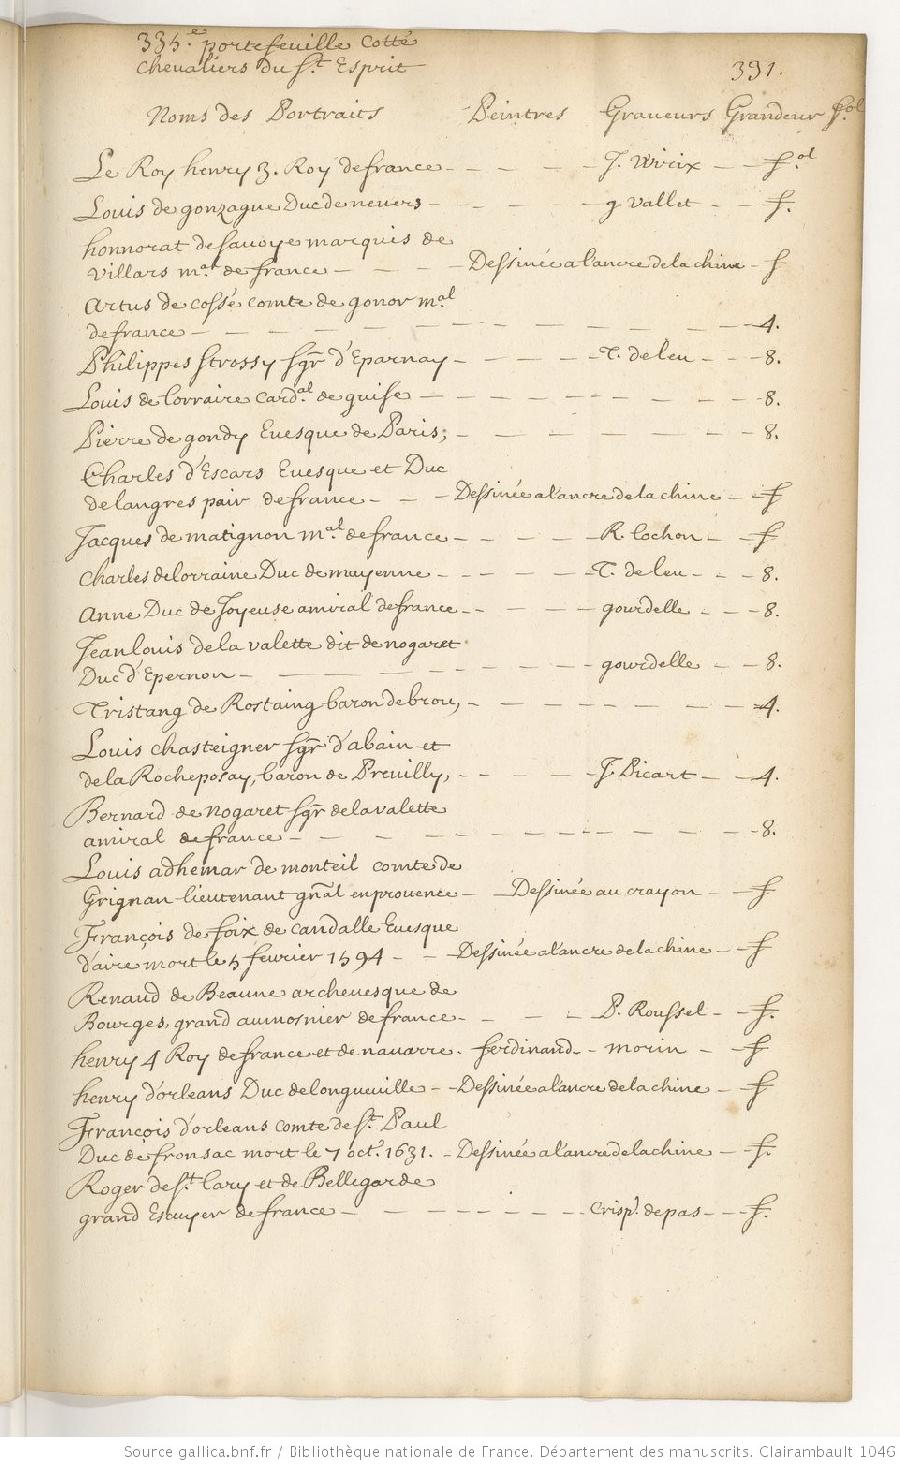 335.e portefeuille Cotté
Chevaliers du St. Esprit
391.
Noms des Portraits Peintres Graveurs Grandeur fol
Le Roy henry 3. Roy de france - - - - J. Wirix - - f.ol
Louis de gonzague Duc de nevers - - - g vallet - - f.
honnorat de savoye marquis de
villars m.al de france - - - - Dessinée a l'ancre de la chine - f
Artus de cossé comte de gonor m.al
de france - - - - - - - - - - - - 4.
Philippes strossy sgr d'Eparnay - - - - T. de leu - - - 8.
Louis de lorraire card.al de guise - - - - - - - - - 8.
Pierre de gondy Evesque de Paris; - - - - - - - 8.
Charles d'Escars Evesque et Duc
de langres pair de france - - - Dessinée a l'ancre de la chine - f
Jacques de matignon m.al de france - - - - R. lochon - - f
Charles de lorraine Duc de mayenne - - - - - T. de leu - - - 8.
Anne Duc de Joyeuse amiral de france - - - - gourdelle - - - 8.
Jean louis de la valette dit de nogaret
Duc d'Epernon - - - - - - - - gourdelle - - 8.
Tristang de Rostaing baron de brou, - - - - - - - - 4.
Louis chasteigner sgr d'abain et
de la Rocheposay, baron de Preuilly, - - - J. Picart - - 4.
Bernard de nogaret sgr de la valette
amiral de france - - - - - - - - - - - 8.
Louis adhemar de monteil comte de
Grignan lieutenant gnal en provence - Dessinée au crayon - - f
François de foix de candalle Evesque
d'aire mort le 5 fevrier 1594 - - Dessinée a l'ancre de la chine - f
Renaud de Beaune archevesque de
Bourges, grand aumosnier de france - - - - P. Roussel - - f.
henry 4 Roy de france et de navarre. ferdinand - - morin - f
henry d'orleans Duc de longueuille - - Dessinée a l'ancre de la chine - f
François d'orleans comte de St. Paul
Duc de fronsac mort le 7 oct. 1631. - Dessinée a l'ancre de la chine - f.
Roger de St. lary et de Bellegarde
grand Escuyer de france - - - - - - - - Crisp. de pas - - - f.
Source gallica.bnf.fr / Bibliothèque nationale de France. Département des manuscrits. Clairambault 1046